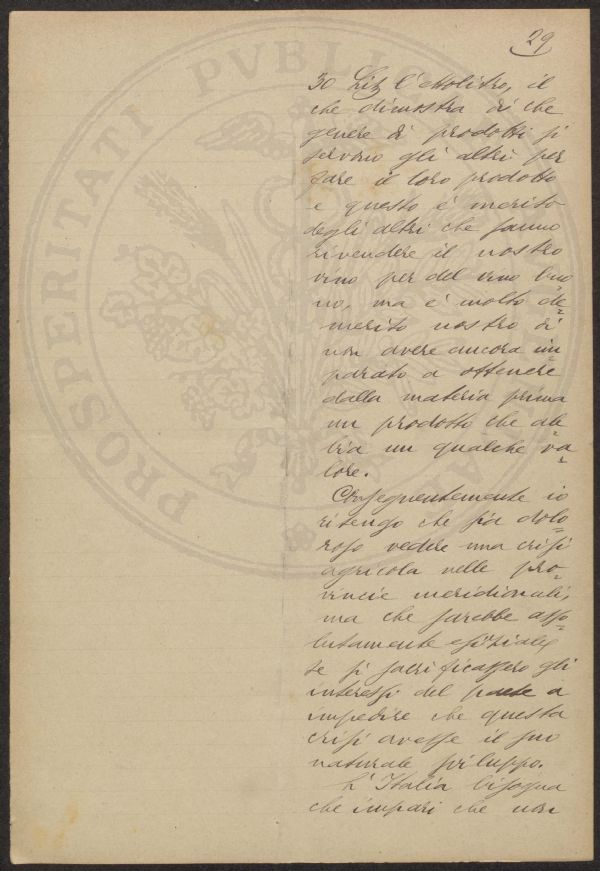 29
30 Lit. l'ettolitro, il
che dimostra di che
genere di prodotti si
servono gli altri per
fare il loro prodotto
e questo è merito
degli altri che fanno
rivendere il nostro
vino per del vino buo
no, ma è molto de=
merito nostro di
non avere ancora im
parato a ottenere
dalla materia prima
un prodotto che ab
bia un qualche va=
lore.
Conseguentemente io
ritengo che sia dolo=
roso vedere una crisi
agricola nelle pro=
vincie meridionali,
ma che sarebbe asso=
lutamente
se si sacrificassero gli
interessi del paese a
impedire che questa
crisi avesse il suo
naturale sviluppo.
L'Italia bisogna
che impari che non
PROSPERITATI PVBLIC